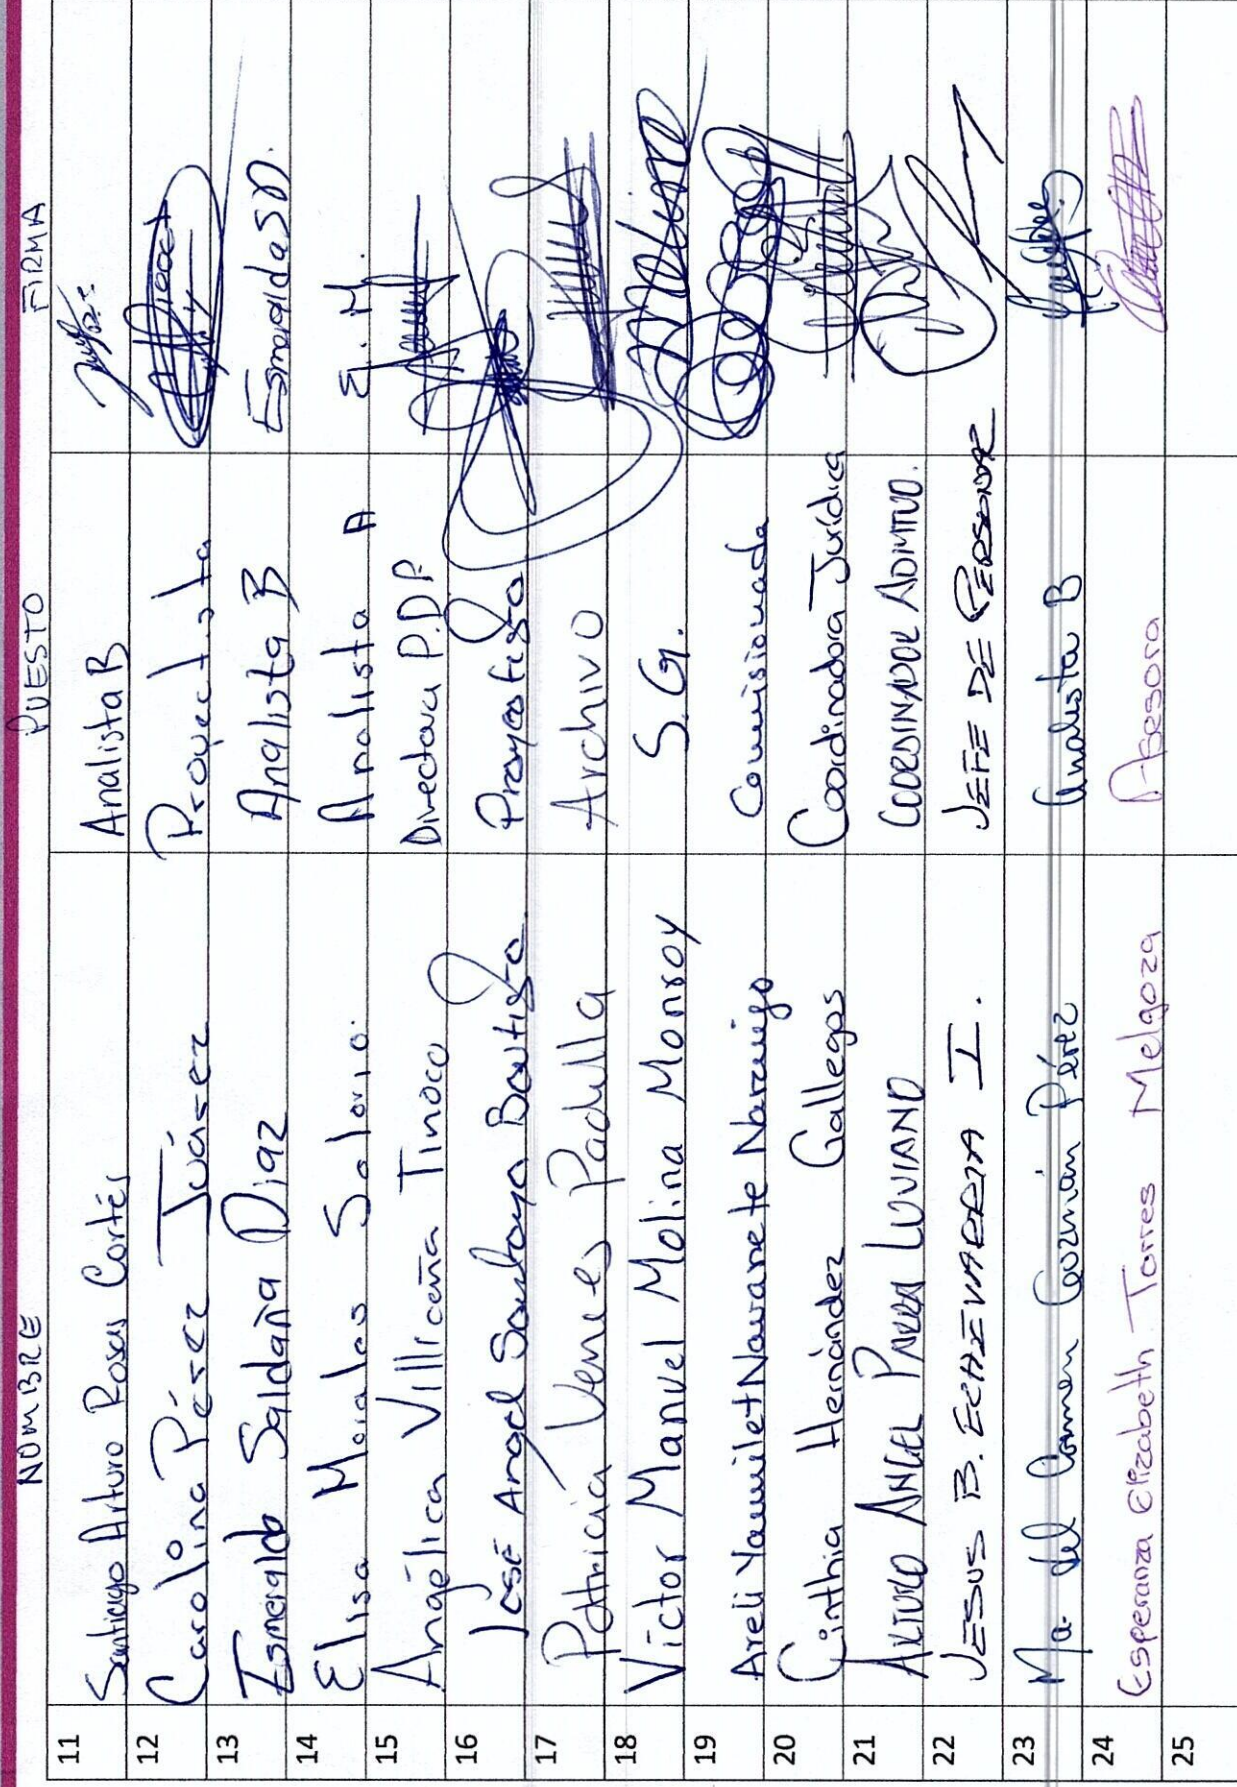 NOMBRE PUESTO FIRMA
11 Santiago Arturo Rosas Cortés Analista B
12 Carolina Pérez Juárez Proyectista
13 Esmeralda Saldaña Diaz Analista B Esmeralda SD.
14 Elisa Morales Solorio. Analista A E. M.
15 Angélica Villicaña Tinoco Directora P.D.P.
16 José Angel Santoyo Bautista Proyectista
17 Patricia Yenes Padilla Archivo
18 Víctor Manuel Molina Monroy S. G.
19 Areli Yamilet Navarrete Naranjo Comisionada
20 Cinthia Hernández Gallegos Coordinadora Jurídica
21 ARTURO ANGEL PARRA LUVIANO COORDINADOR ADMTVO.
22 JESUS B. ECHEVARRIA I. JEFE DE
23 Ma. del Carmen Guzmán Pérez Analista B
24 Esperanza Elizabeth Torres Melgoza Asesora
25